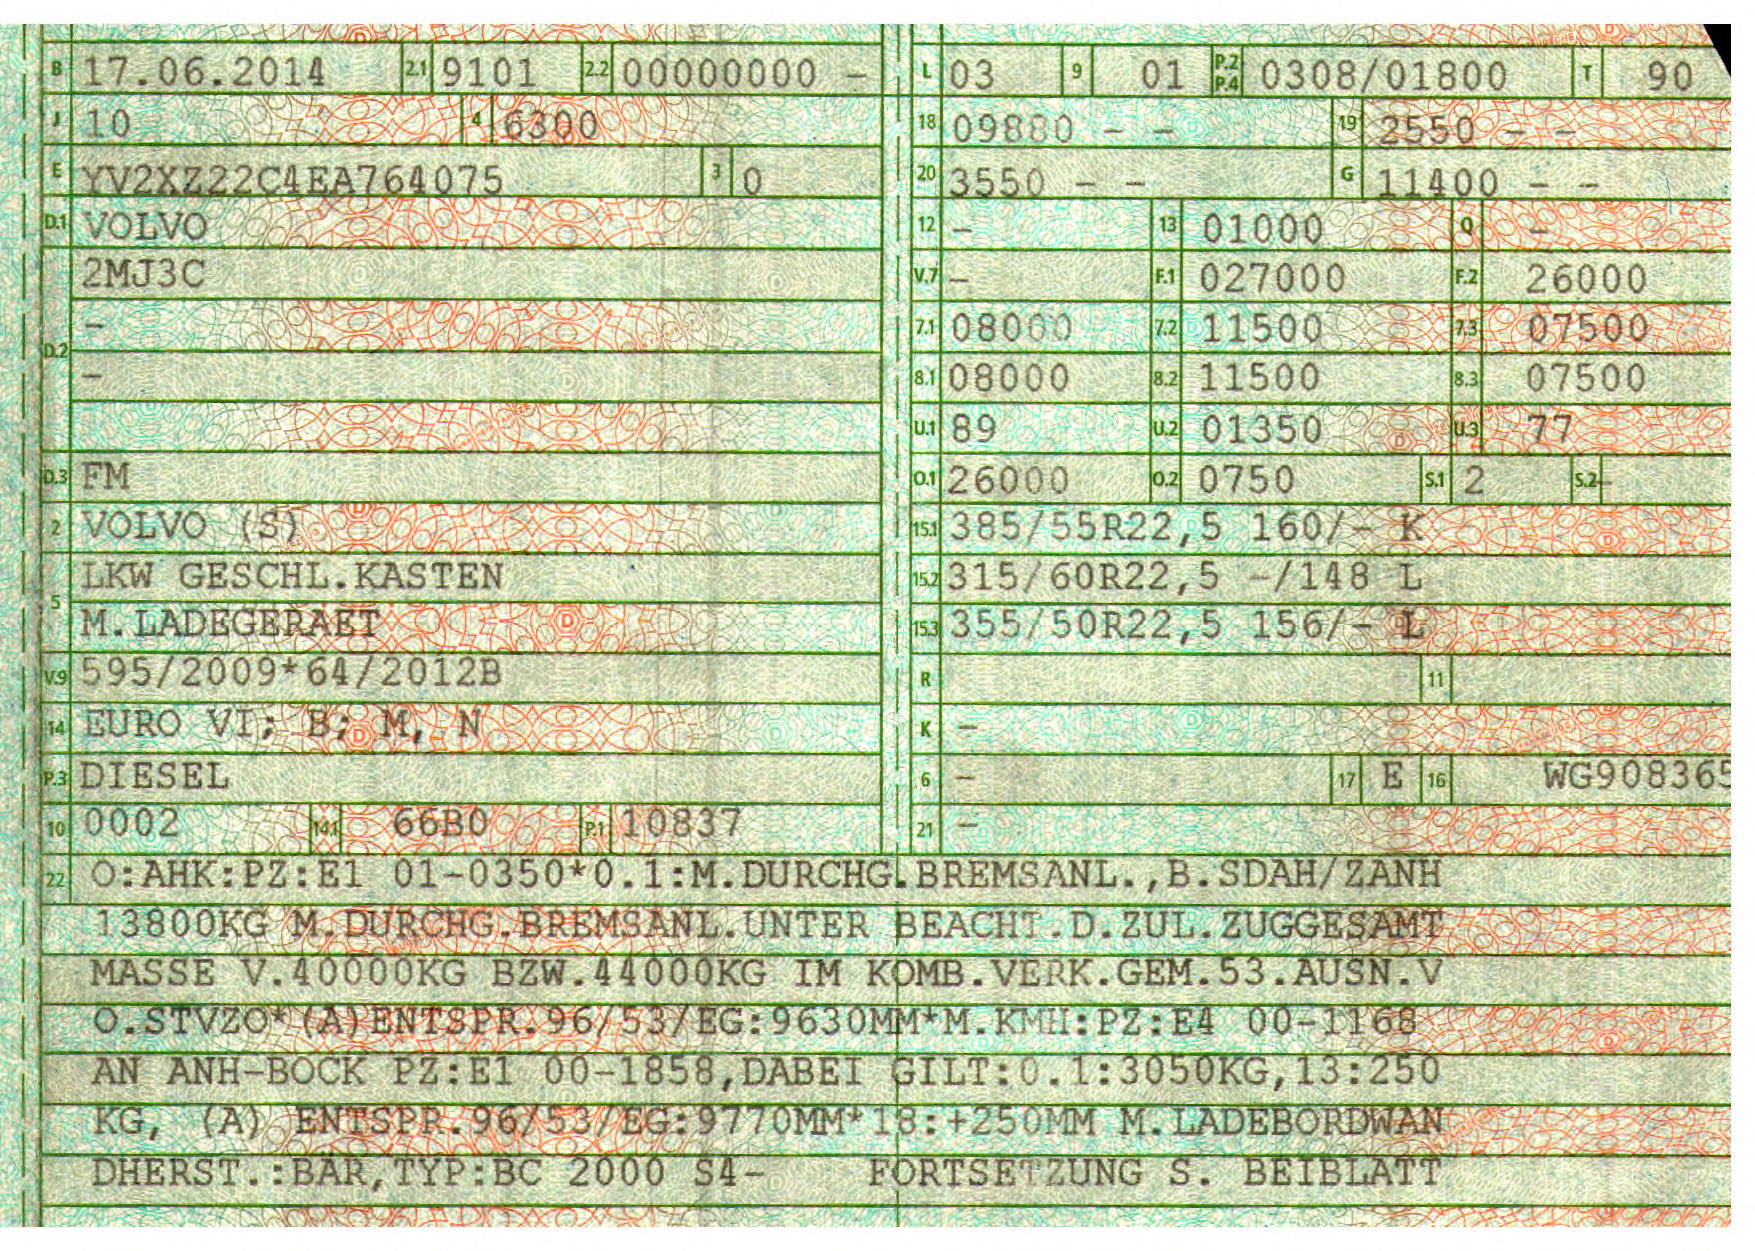 B 17.06.2014 2.1 9101 2.2 00000000 -
J 10 4 6300
E YV2XZ22C4EA764075 3 0
D.1 VOLVO
2MJ3C
-
D.2
-
D.3 FM
2 VOLVO (S)
LKW GESCHL.KASTEN
5
M.LADEGERAET
V.9 595/2009*64/2012B
14 EURO VI; B; M, N
P.3 DIESEL
10 0002 14.1 66B0 P.1 10837
L 03 9 01 P.2 P.4 0308/01800 T 90
18 09880 - - 19 2550 - -
20 3550 - - G 11400 - -
12 - 13 01000 Q -
V.7 - F.1 027000 F.2 26000
7.1 08000 7.2 11500 7.3 07500
8.1 08000 8.2 11500 8.3 07500
U.1 89 U.2 01350 U.3 77
O.1 26000 O.2 0750 S.1 2 S.2 -
15.1 385/55R22,5 160/- K
15.2 315/60R22,5 -/148 L
15.3 355/50R22,5 156/- L
R 11
K -
6 - 17 E 16 WG908365
21 -
22 O:AHK:PZ:E1 01-0350*0.1:M.DURCHG.BREMSANL.,B.SDAH/ZANH
13800KG M.DURCHG.BREMSANL.UNTER BEACHT.D.ZUL.ZUGGESAMT
MASSE V.40000KG BZW.44000KG IM KOMB.VERK.GEM.53.AUSN.V
O.STVZO*(A)ENTSPR.96/53/EG:9630MM*M.KMH:PZ:E4 00-1168
AN ANH-BOCK PZ:E1 00-1858,DABEI GILT:0.1:3050KG,13:250
KG, (A) ENTSPR.96/53/EG:9770MM*18:+250MM M.LADEBORDWAN
DHERST.:BÄR,TYP:BC 2000 S4- FORTSETZUNG S. BEIBLATT